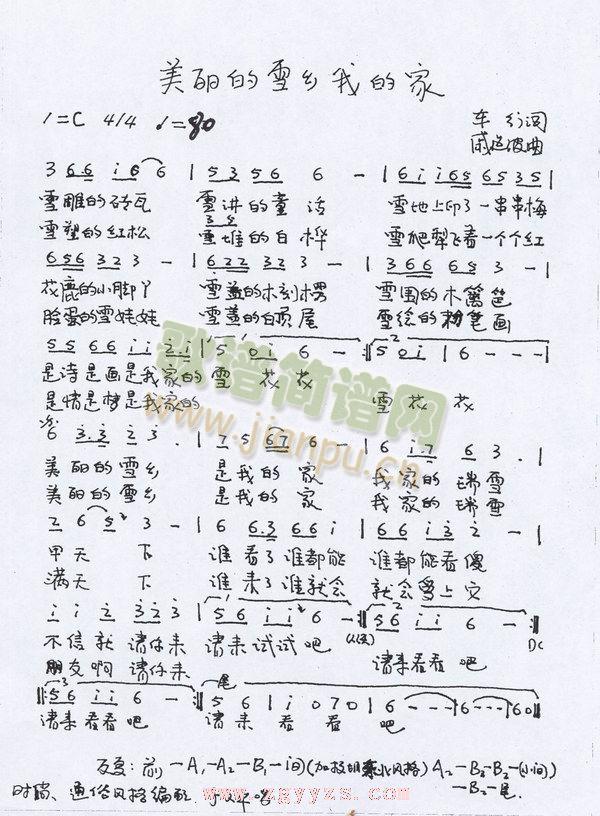 美丽的雪乡我的家
1=C 4/4 ♩=80
车行词
戚建波曲
3 6 6 i 6 6 | 5 3 5 6 6 - | 6 i i 6 5 6 5 3 5 |
雪雕的砖瓦 雪讲的童话 雪地上印了一串串梅
3 5
雪塑的红松 雪堆的白桦 雪爬犁飞着一个个红
6 5 6 3 2 3 - | 6 2 2 3 2 3 - | 3 6 6 6 5 3 - |
花鹿的小脚丫 雪盖的木刻楞 雪围的木篱笆
脸蛋的雪娃娃 雪盖的白顶屋 雪绘的粉笔画
5 5 6 6 i i 2 i | 5 0 i 6 - :‖ 5 0 i | 6 - - - |
是诗是画是我家的 雪 花 花
是情是梦是我家的 雪 花 花
6 3 3 2 3 . | 7 5 6 7 6 - | 6 i 7 6 3 . |
美丽的雪乡 是我的 家 我家的 瑞雪
美丽的雪乡 是我的 家 我家的 瑞雪
2 6 5 2 3 - | 6 6 3 6 6 i | 6 6 i 3 2 - |
甲天 下 谁看了谁都能 谁都能看傻
满天 下 谁来了谁就会 就会爱上它
i i 2 3 2 2 3 | 5 6 i i 2 6 - :‖ 5 6 i i 6 - :‖
不信就 请你来 请来试试吧
D.C
朋友啊 请你来 请来看看 吧
‖: 5 6 i i 6 - :‖ 5 6 | i i 0 7 0 | 6 - - - | 6 - - | 6 0 ‖
请来看看吧 请来 看 看 吧
反复：前
时尚、通俗风格编配
歌谱简谱网
www.jianpu.cn
www.zgyyzs.com